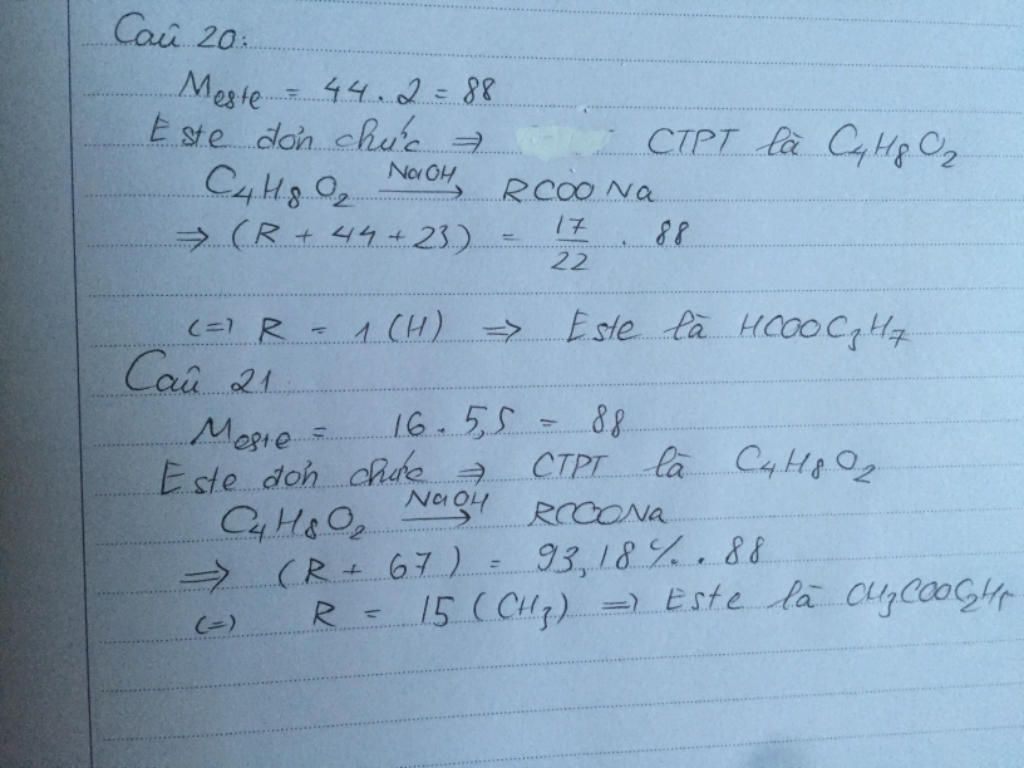 Câu 20:
Meste = 44 . 2 = 88
Este đơn chức => CTPT là C₄H₈O₂
C₄H₈O₂ NaOH → RCOONa
=> (R + 44 + 23) = 17/22 . 88
(=) R = 1 (H) => Este là HCOOC₃H₇
Câu 21
Meste = 16 . 5,5 = 88
Este đơn chức => CTPT là C₄H₈O₂
C₄H₈O₂ NaOH → RCOONa
=> (R + 67) = 93,18% . 88
(=) R = 15 (CH₃) => Este là CH₃COOC₂H₅